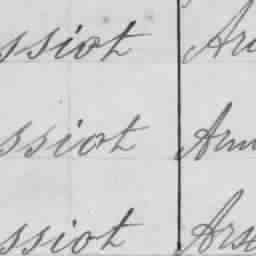 ssiot Ar
ssiot Arm
ssiot Arse